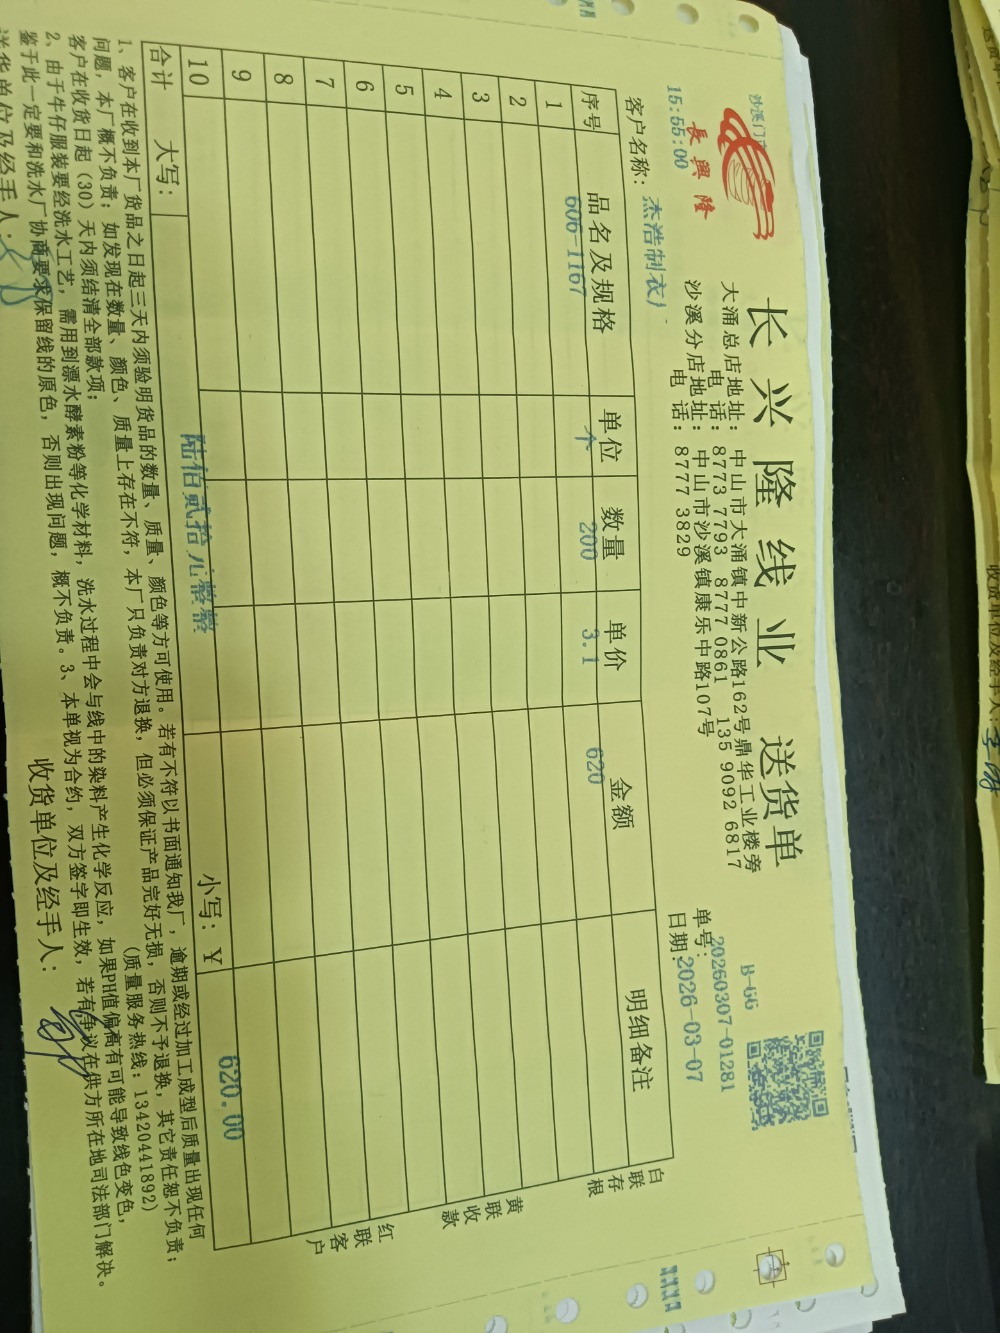 沙溪门市
長興隆
15:55:00
长兴隆线业 送货单
B-66
大涌总店地址: 中山市大涌镇中新公路162号鼎华工业楼旁
电 话: 8773 7793 8777 0861 135 9092 6817
沙溪分店地址: 中山市沙溪镇康乐中路107号
电 话: 8777 3829
单号: 20260307-01281
日期: 2026-03-07
客户名称: 杰浩制衣厂
序号 品名及规格 单位 数量 单价 金额 明细备注
1 606-1167 个 200 3.1 620
2
3
4
5
6
7
8
9
10
合计 大写: 陆佰贰拾元整整 小写: ¥ 620.00
白联存根
黄联收款
红联客户
1、客户在收到本厂货品之日起三天内须验明货品的数量、质量、颜色等方可使用。若有不符以书面通知我厂,逾期或经过加工成型后质量出现任何
问题,本厂概不负责;如发现在数量、颜色、质量上存在不符,本厂只负责对方退换,但必须保证产品完好无损,否则不予退换,其它责任恕不负责;
客户在收货日起(30)天内须结清全部款项; (质量服务热线:13420441892)
2、由于牛仔服装要经洗水工艺,需用到漂水酵素粉等化学材料,洗水过程中会与线中的染料产生化学反应,如果PH值偏高有可能导致线色变色,
鉴于此一定要和洗水厂协商要求保留线的原色,否则出现问题,概不负责。3、本单视为合约,双方签字即生效,若有争议在供方所在地司法部门解决。
送货单位及经手人:
收货单位及经手人:
收货单位及经手人: